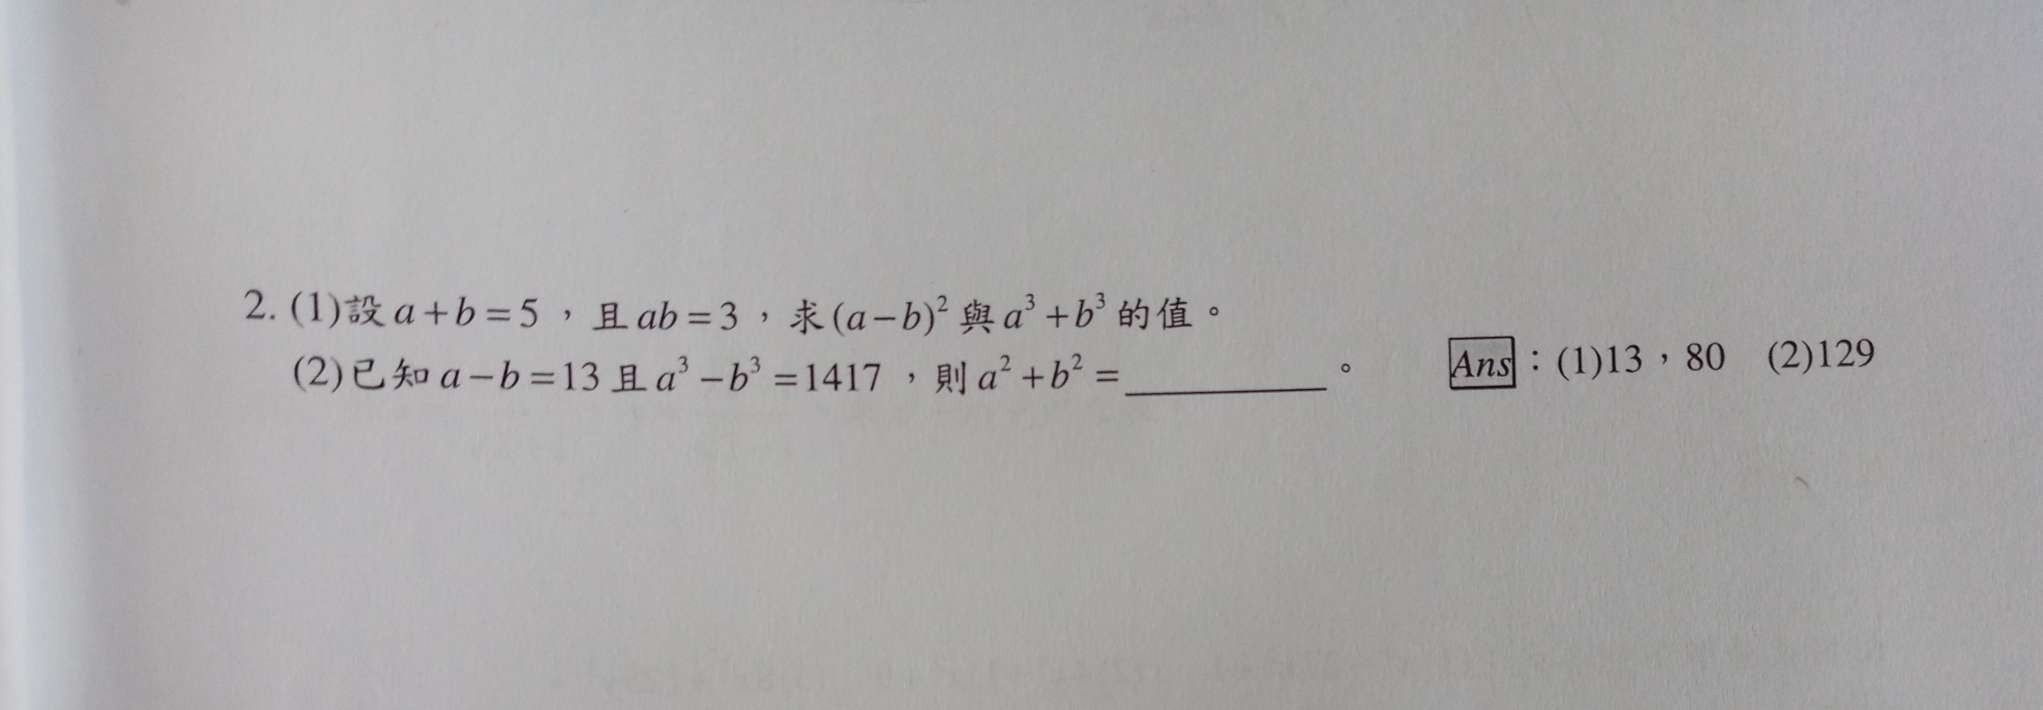 2. (1)設 a+b=5，且 ab=3，求(a−b)²與 a³+b³的值。
(2)已知 a−b=13 且 a³−b³=1417，則 a²+b²=__________。
Ans：(1)13，80 (2)129